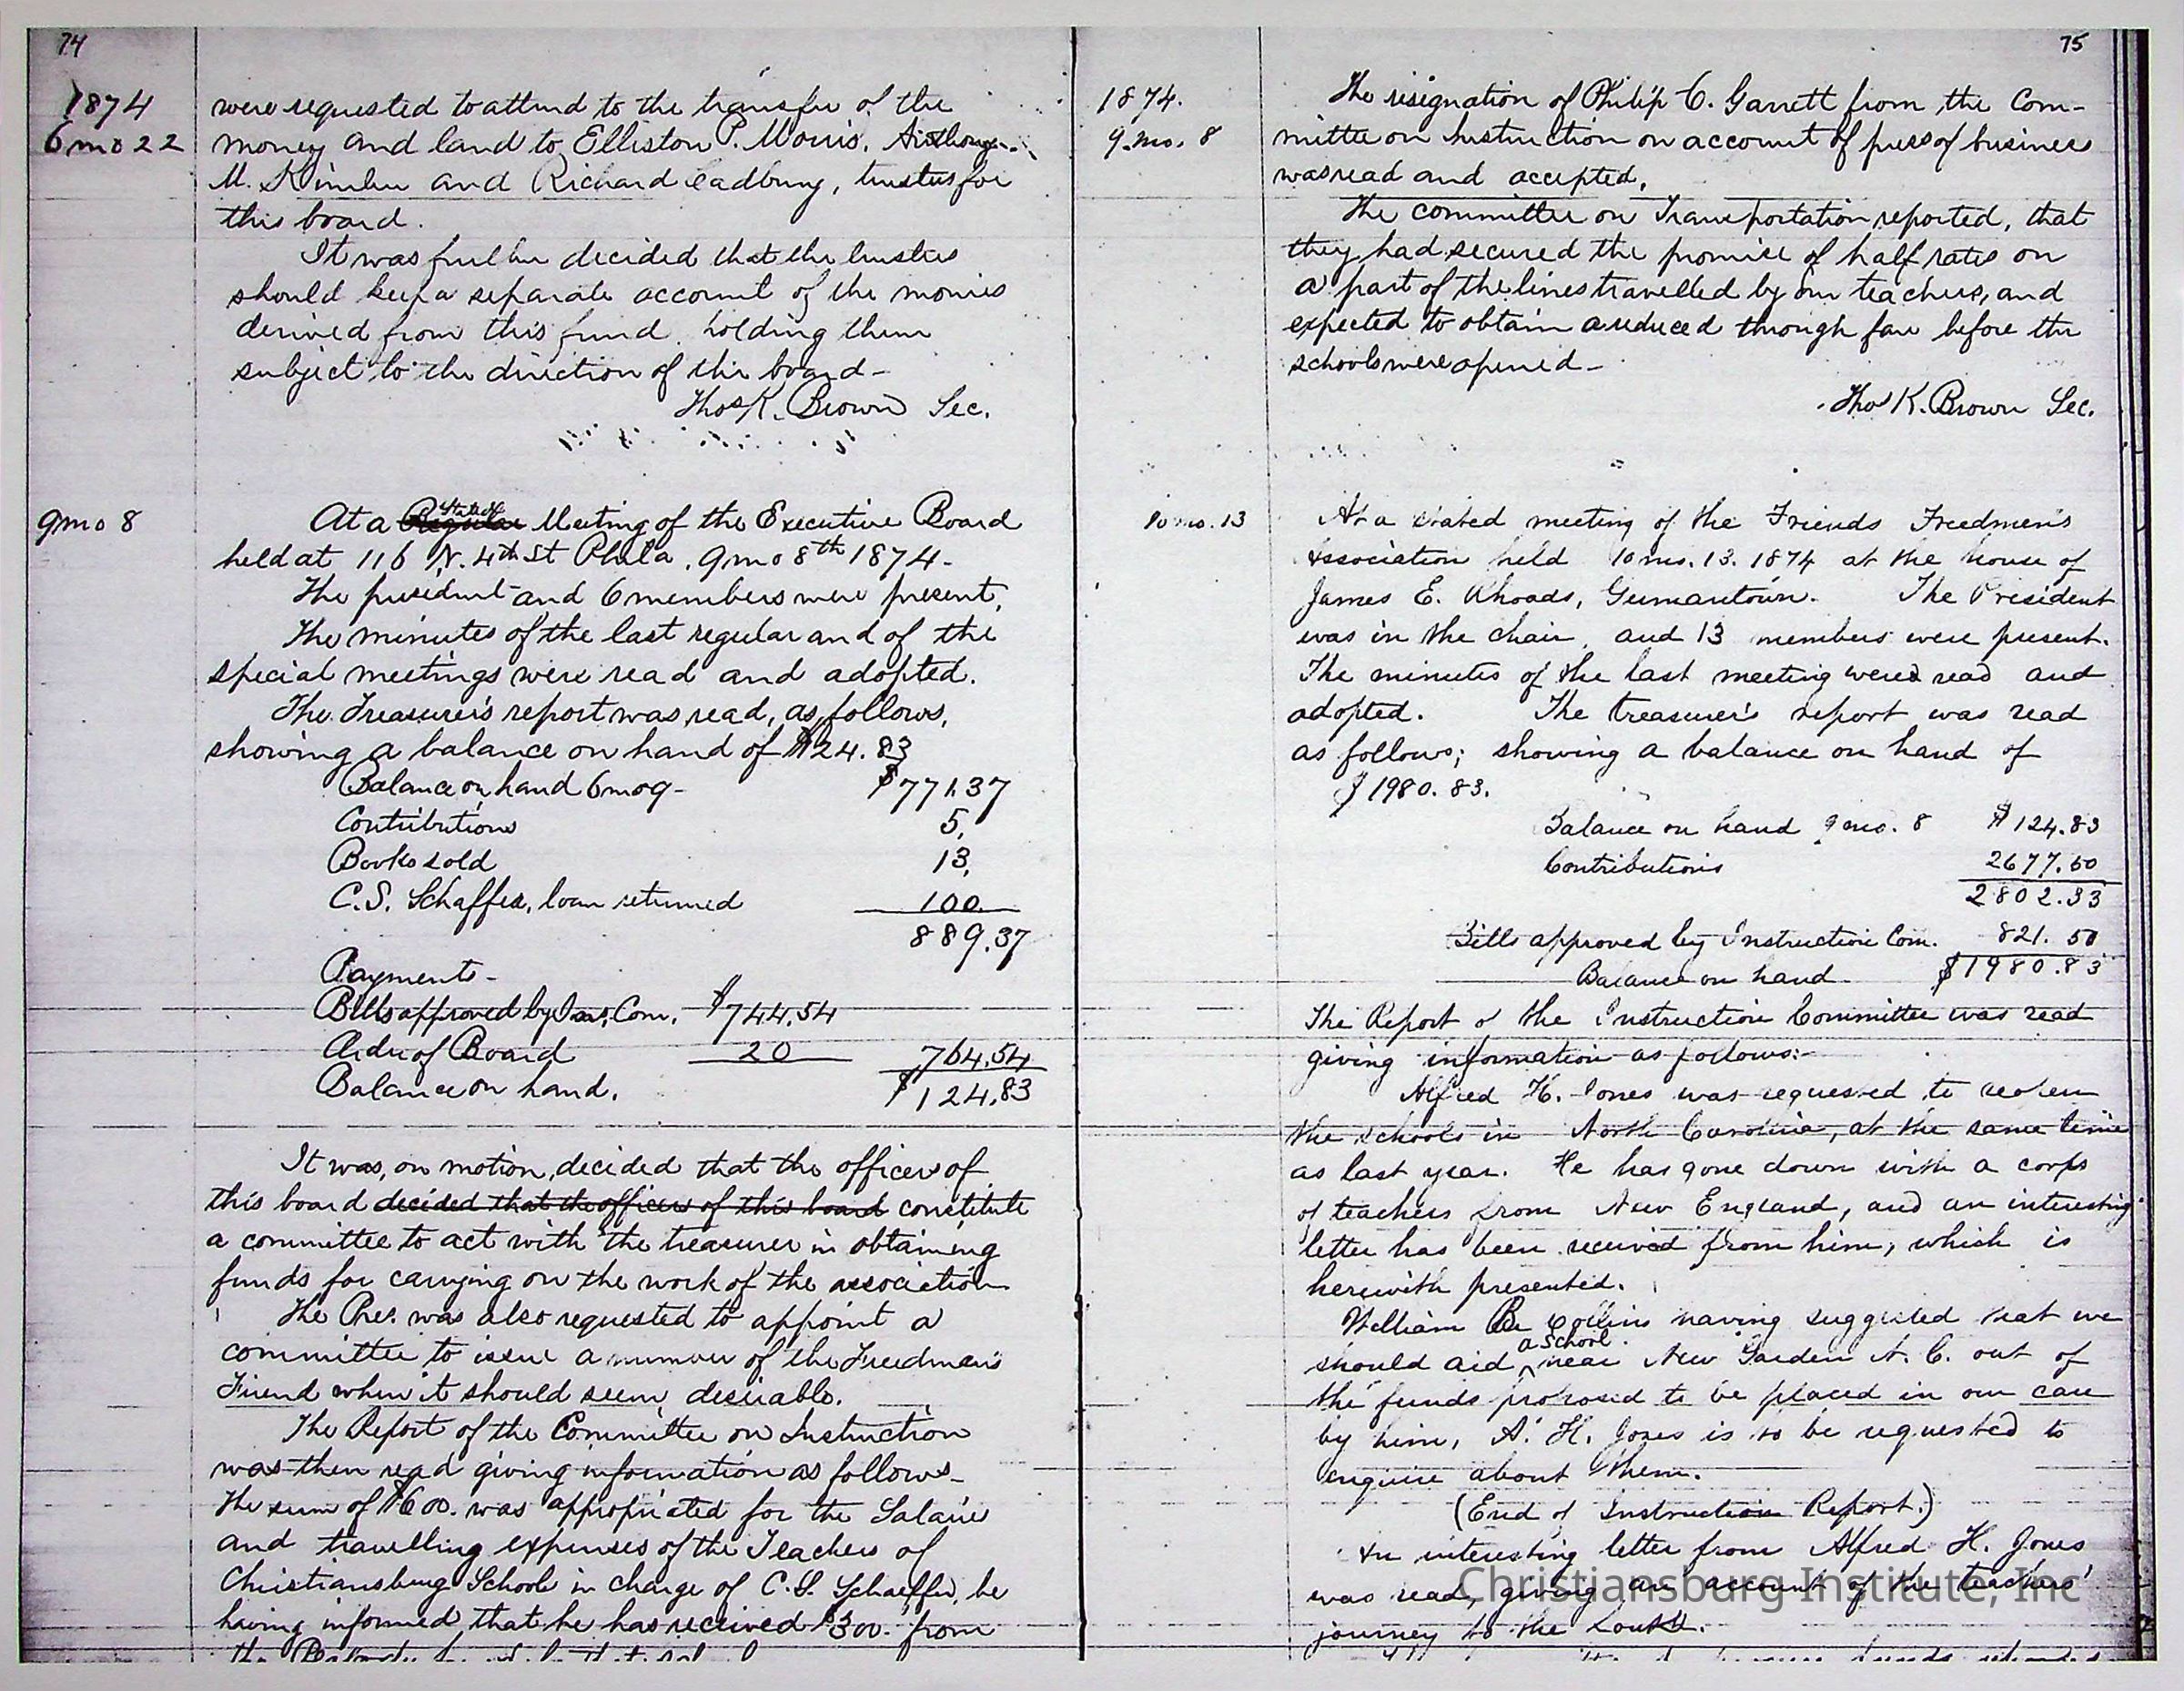 74
1874
6 mo 22
were requested to attend to the transfer of the
money and land to Elliston P. Morris, Anthony
M. Kimber and Richard Cadbury, trustees for
this board.
It was further decided that the trustees
should keep a separate account of the monies
derived from this fund, holding them
subject to the direction of this board-
Thos K. Brown Sec.
9 mo 8
At a Regular Stated Meeting of the Executive Board
held at 116 N. 4th St Phila. 9 mo 8th 1874-
The president and 6 members were present,
The minutes of the last regular and of the
special meetings were read and adopted.
The Treasurer's report was read, as follows,
showing a balance on hand of $124.83
Balance on hand 6 mo 9- $771.37
Contributions 5,
Books sold 13,
C.S. Schaffer, loan returned 100.
889.37
Payments-
Bills approved by Ins. Com. $744.54
Order of Board 20 764.54
Balance on hand. $124.83
It was, on motion, decided that the officers of
this board decided that the officers of this board constitute
a committee to act with the treasurer in obtaining
funds for carrying on the work of the association
The Pres. was also requested to appoint a
committee to issue a number of the Freedman's
Friend when it should seem desirable.
The Report of the Committee on Instruction
was then read giving information as follows-
The sum of $600. was appropriated for the Salaries
and travelling expenses of the Teachers of
Christiansburg School in charge of C.S. Schaeffer, he
having informed that he has received $300. from
75
1874.
9. mo. 8
The resignation of Philip C. Garrett from the Com-
mittee on Instruction on account of press of business
was read and accepted.
The committee on Transportation reported, that
they had secured the promise of half rates on
a part of the lines travelled by our teachers, and
expected to obtain a reduced through fare before the
schools were opened-
Thos K. Brown Sec.
10 mo. 13
At a stated meeting of the Friends Freedmen's
Association held 10 mo. 13. 1874 at the house of
James E. Rhoads, Germantown. The President
was in the chair, and 13 members were present.
The minutes of the last meeting were read and
adopted. The treasurer's report was read
as follows; showing a balance on hand of
$1980.83.
Balance on hand 9 mo. 8 $124.83
Contributions 2677.50
2802.33
Bills approved by Instruction Com. 821.50
Balance on hand $1980.83
The Report of the Instruction Committee was read
giving information as follows:-
Alfred H. Jones was requested to reopen
the schools in North Carolina, at the same time
as last year. He has gone down with a corps
of teachers from New England, and an interesting
letter has been received from him, which is
herewith presented.
William B. Collins having suggested that we
should aid a School near New Garden N.C. out of
the funds proposed to be placed in our care
by him, A. H. Jones is to be requested to
enquire about them.
(End of Instruction Report.)
An interesting letter from Alfred H. Jones
was read, giving an account of the teachers'
journey to the South.
Christiansburg Institute, Inc